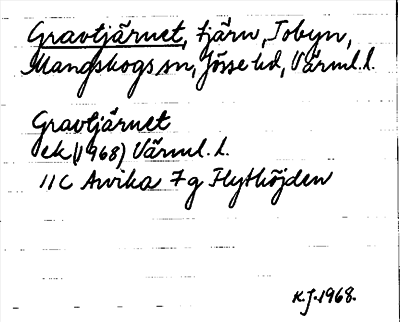 Gravtjärnet, tjärn, Tobyn,
Mangskogs sn, Jösse hd, Värml. l.
Gravtjärnet
ek (1968) Värml. l.
11C Arvika 7g Flythöjden
K.J. 1968.